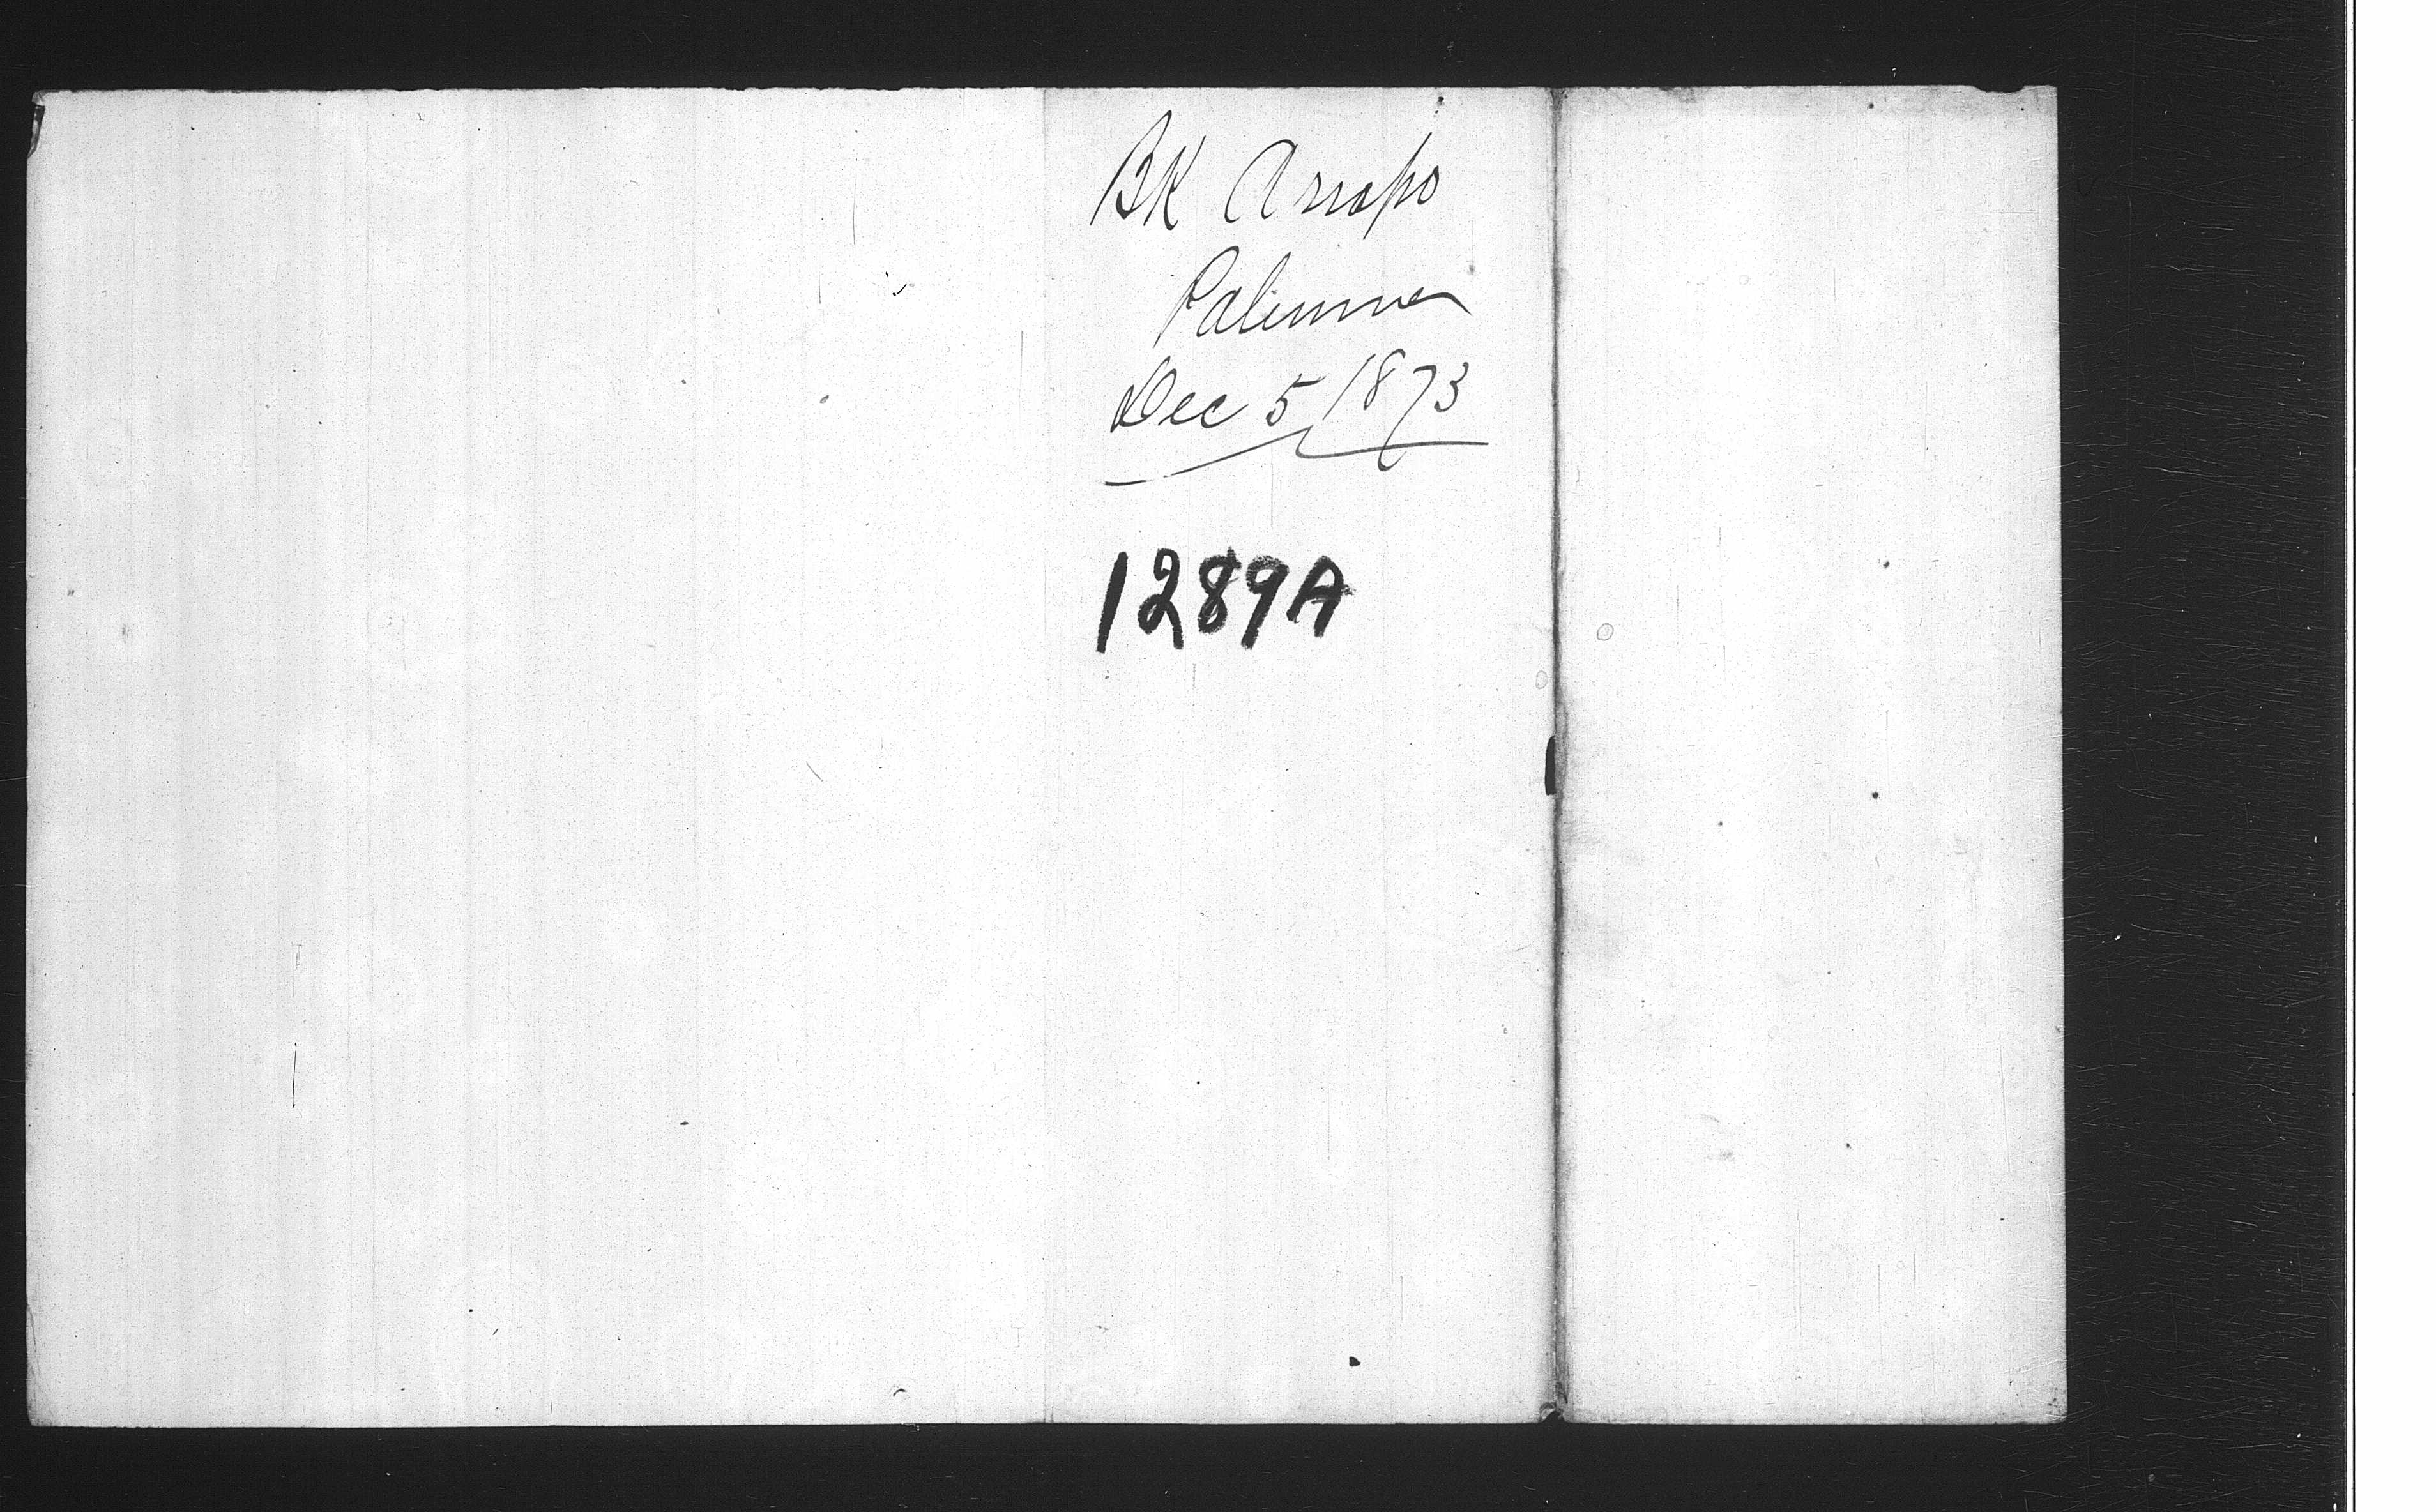 BK Arrapo
Palermo
Dec 5 1873
1289A